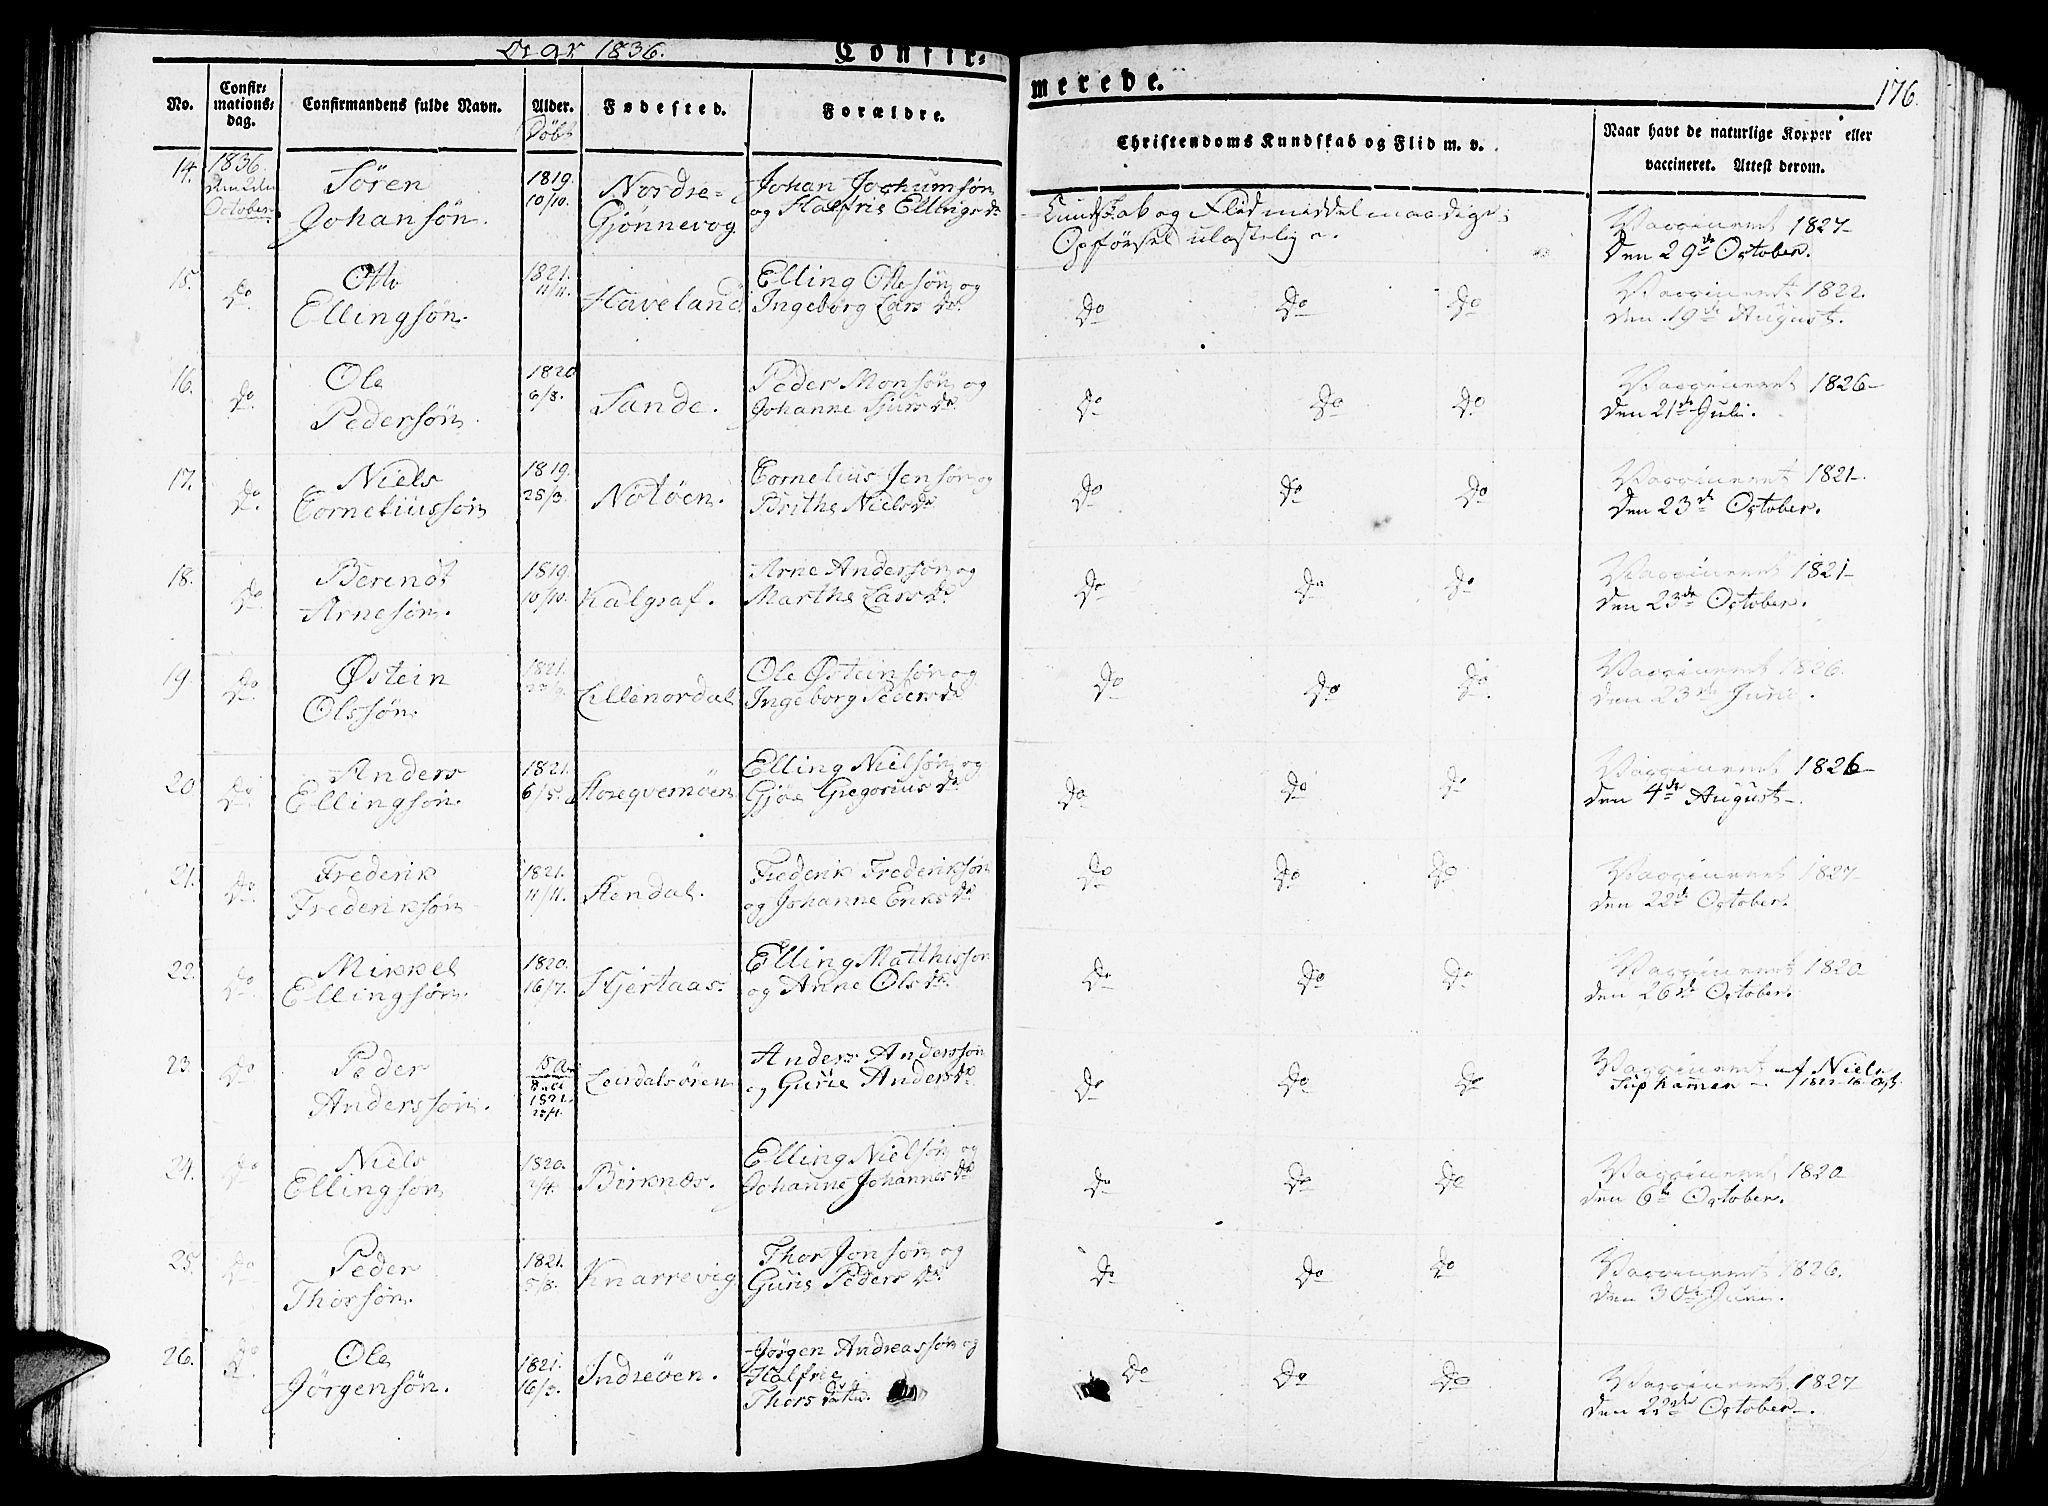 Aar 1836.
Confir=
merede.
176.
No.
Confir=
mations=
dag.
Confirmandens fulde Navn.
Alder.
Döbt
Fødested.
Forældre.
Christendoms Kundskab og Flid m. v.
Naar havt de naturlige Kopper eller
vaccineret. Attest derom.
14. 1836. Sören 1819. Nordre= Johan Jochumsön
October Johansön. 10/10. Gjønnevog og Halfrie Ellings Dr.
Kundskab og Flid middelmaadige;
Opförsel ulastelig.
Vaccineret 1827
den 29de October.
15. Do Otto 1821. Haveland. Elling Ottesön og
Ellingsön. 11/11. Ingeborg Lars Dr.
Do Do Do Vaccineret 1822.
den 19de August.
16. Do Ole 1820 Sande. Peder Monsön og
Pedersön. 6/8. Johanne Sjurs Dr.
Do Do Do Vaccineret 1826
den 21de Juli.
17. Do Niels 1819. Notöen. Cornelius Jensön og
Corneliussön 25/3. Brithe Niels Dr
Do Do Do Vaccineret 1821.
den 23de October.
18. Do Berendt 1819. Kalgraf. Arne Andersön og
Arnesön. 10/10. Marthe Lars Dr.
Do Do Do Vaccineret 1821
den 23de October.
19 Do Østein 1821. Lillenordal Ole Østeinsön og
Olssön. Ingeborg Peders Dr
Do Do Do Vaccineret 1826.
den 23de Juni.
20 Do Anders 1821. Elling Nielsön og
Ellingsön. 6/5. Gjöe Gregorius Dr.
Do Do Do Vaccineret 1826
den 4de August.
21. Do Frederik 1821. Stendal. Frederik Frederiksön
Frederiksön 11/11. og Johanne Eriks Dr
Do Do Do Vaccineret 1827
den 22de October.
22. Do Mikkel 1820. Hjertaas. Elling Matthissön
Ellingsön. 16/7. og Anne Ols Dr.
Do Do Do Vaccineret 1820
den 26de October.
23. Do Peder 15 Aar Leirdalsören Anders Anderssön
Anderssön. 1821. og Gurie Anders Dr
Do Do Do Vaccineret af Niels
24. Do Niels 1820. Birknæs. Elling Nielsön og
Ellingsön Johanne Johannes Dr
Do Do Do Vaccineret 1820
den 6te October.
25. Do Peder 1821. Knarrevig. Thor Jonsön og
Thorsön. 5/8. Guris Peders Dr.
Do Do Do Vaccineret 1826.
den 30te Juni.
26. Do Ole 1821. Indreöen. Jörgen Andreassön og
Jörgensön. Halfrie
Thors Datter.
Do Do Do Vaccineret 1827
den 22de October.